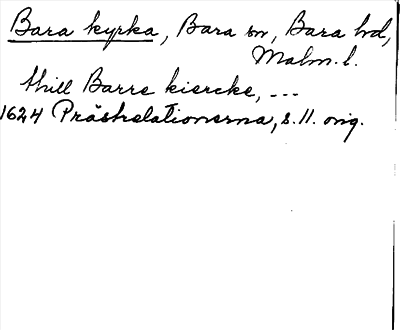 Bara kyrka, Bara sn, Bara hd,
Malm. l.
thill Barre kiercke, ---
1624 Prästrelationerna, s. 11. orig.